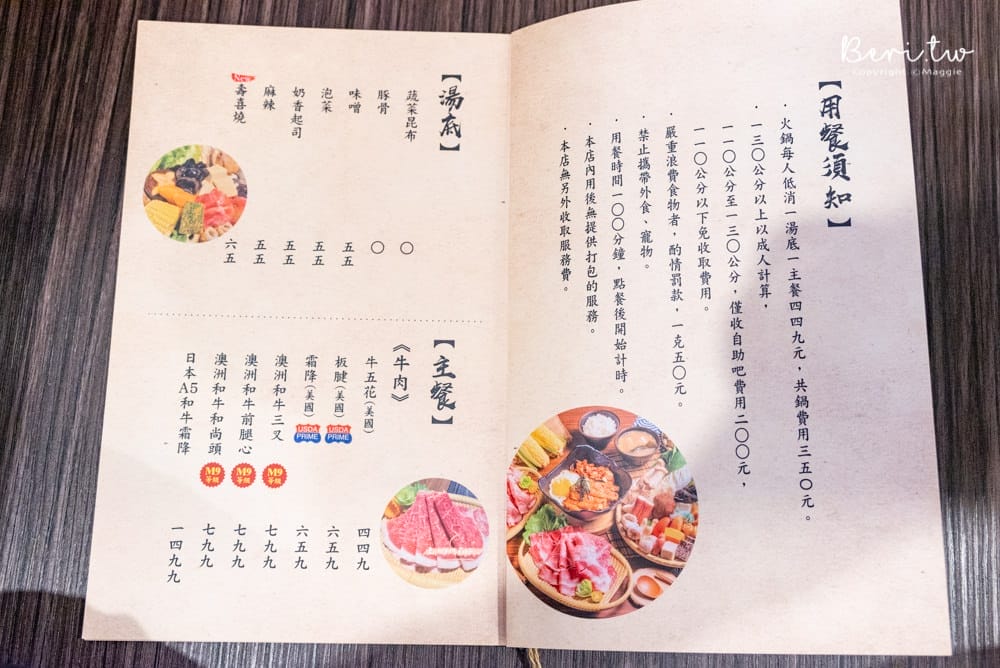 Beri.tw
Copyright ©Maggie
【用餐須知】
· 火鍋每人低消一湯底一主餐四四九元，共鍋費用三五〇元。
· 一三〇公分以上以成人計算，
一一〇公分至一三〇公分，僅收自助吧費用二〇〇元，
一一〇公分以下免收取費用。
· 嚴重浪費食物者，酌情罰款，一克五〇元。
· 禁止攜帶外食、寵物。
· 用餐時間一〇〇分鐘，點餐後開始計時。
· 本店內用後無提供打包的服務。
· 本店無另外收取服務費。
【湯底】
蔬菜昆布 〇
豚骨 〇
味噌 五五
泡菜 五五
奶香起司 五五
麻辣 五五
New 壽喜燒 六五
【主餐】
《牛肉》
牛五花(美國) 四四九
板腱(美國) USDA PRIME 六五九
霜降(美國) USDA PRIME 六五九
澳洲和牛三叉 M9等級 七九九
澳洲和牛前腿心 M9等級 七九九
澳洲和牛和尚頭 M9等級 七九九
日本A5和牛霜降 一四九九